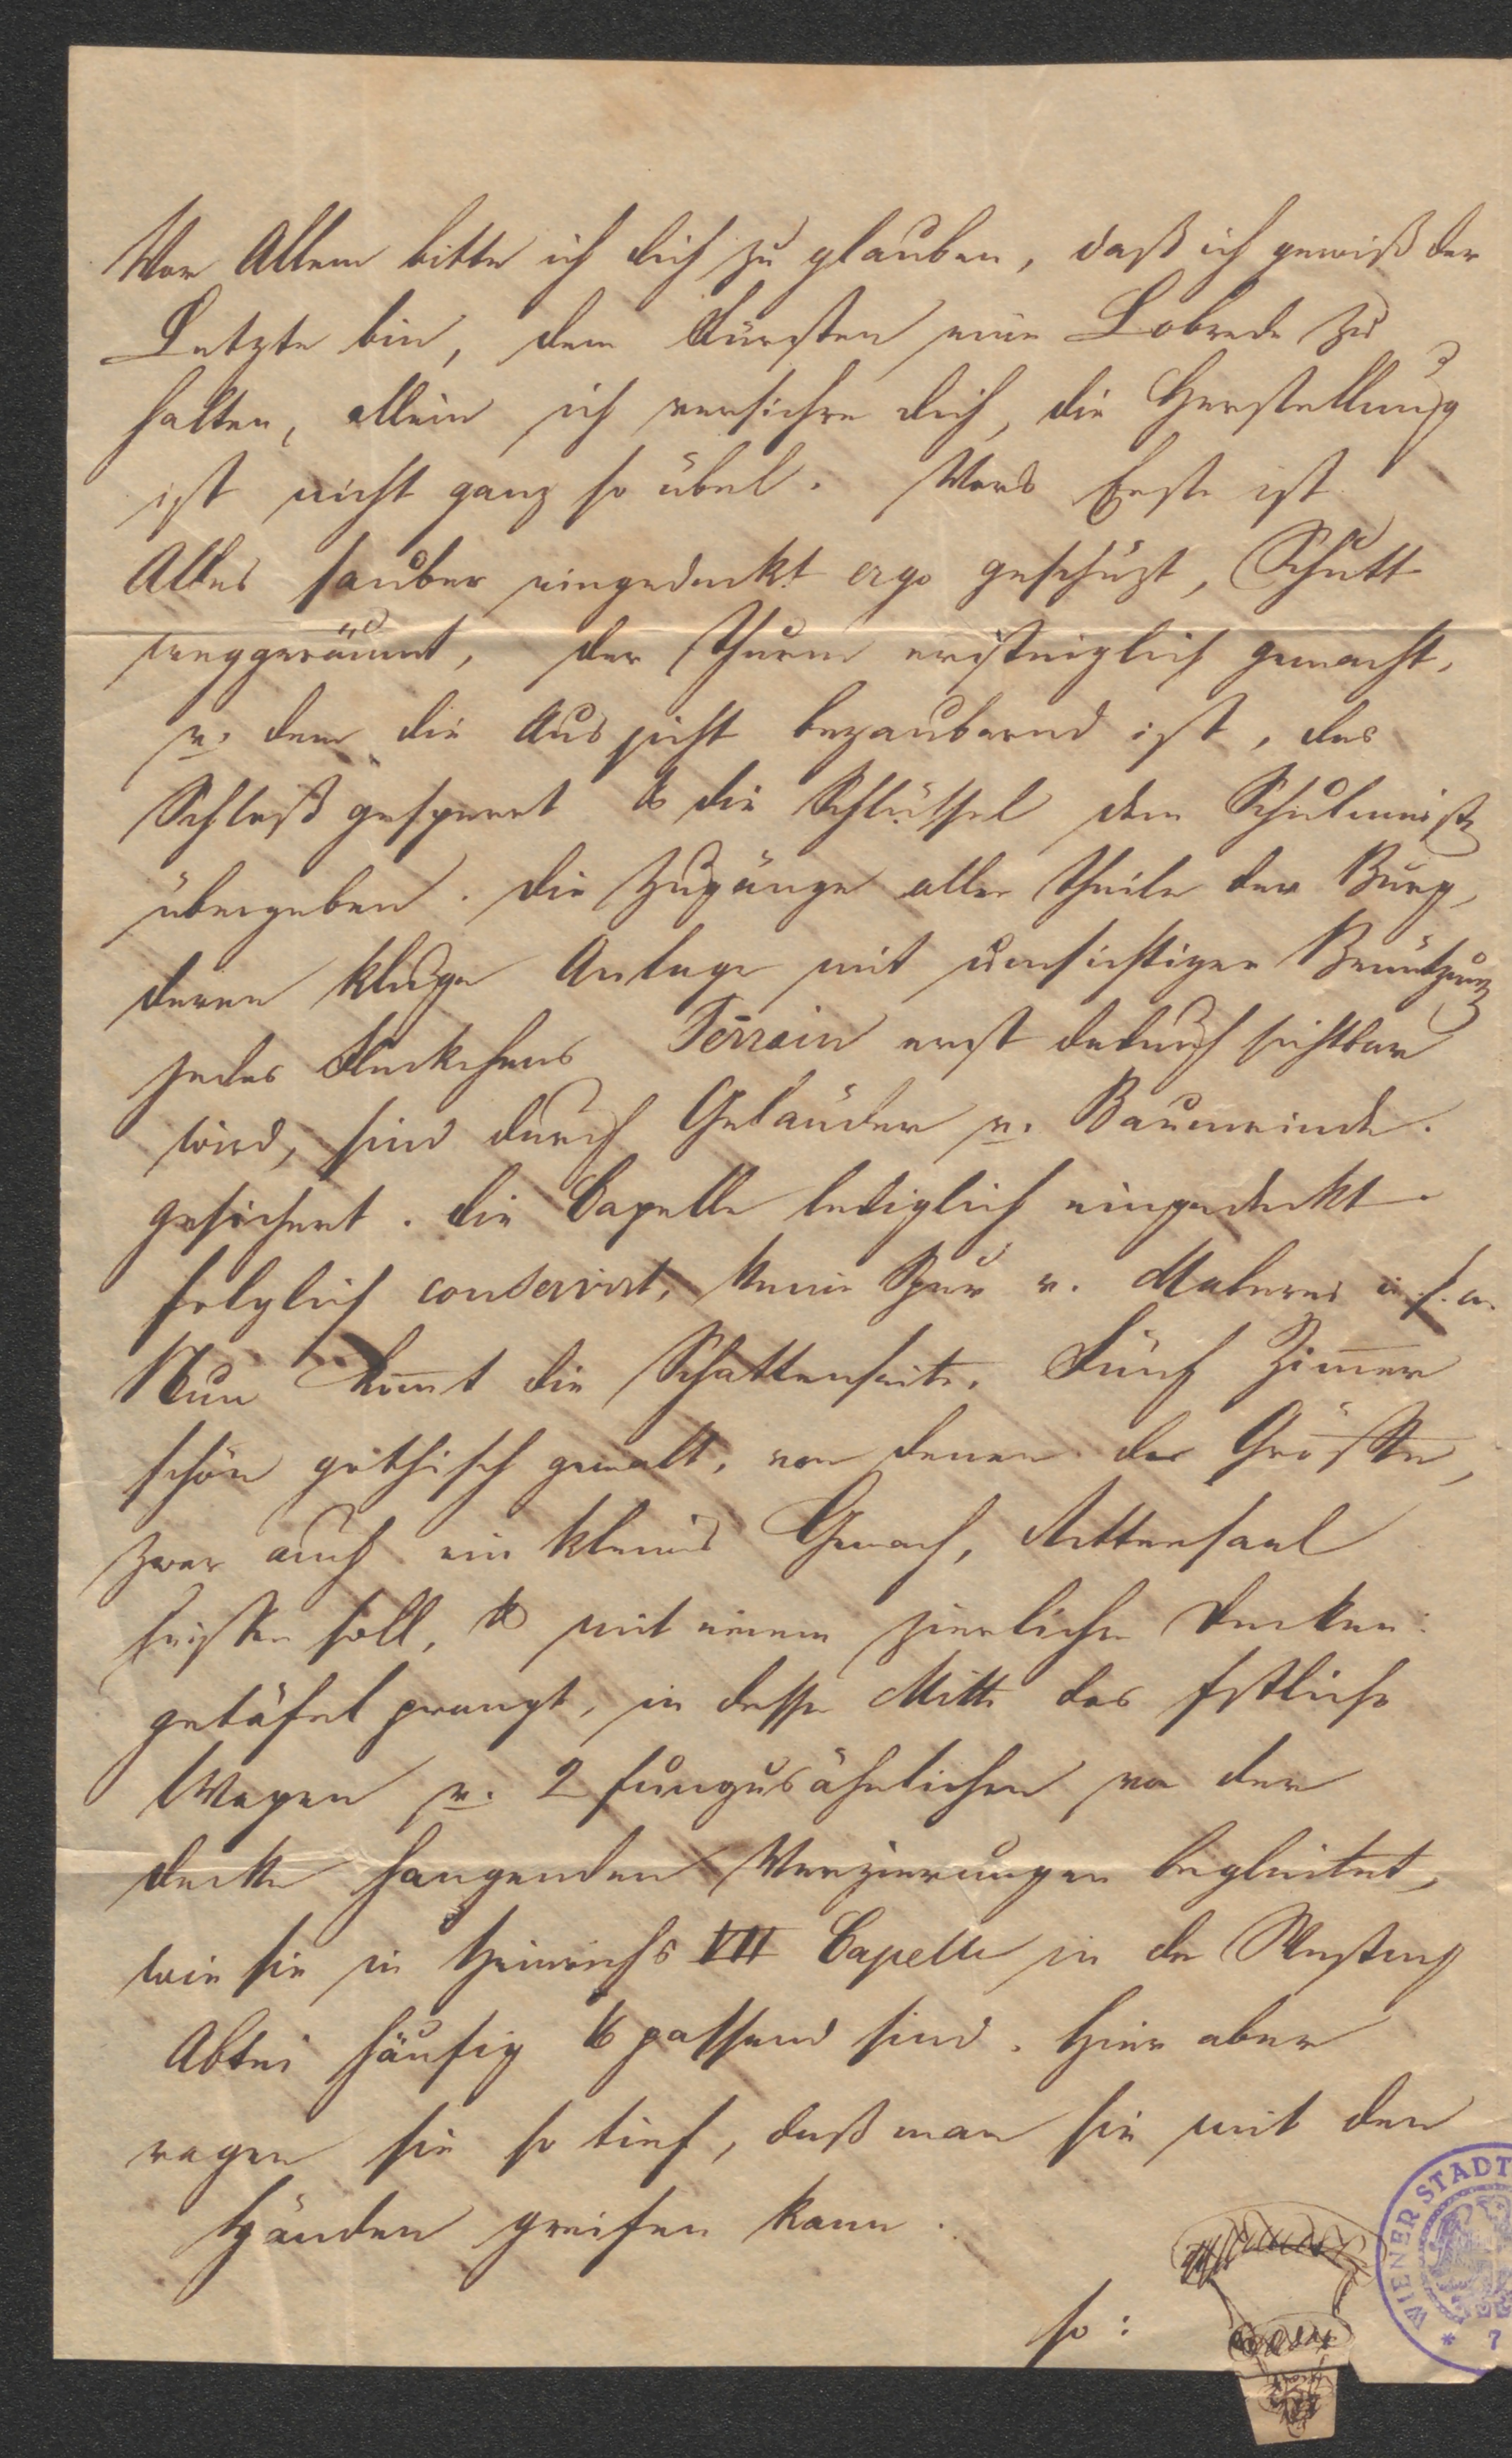 Vor Allem bitte ich dich zu glauben, daß ich gewiß der
Letzte bin, dem Fürsten eine Lobrede zu
halten, allein ich versichre dich, die Herstellung
ist nicht ganz so übel. Vors Erste ist
Alles sauber eingedeckt ergo geschüzt, Schutt
weggeräumt, der Thurm ersteiglich gemacht,
v. dem die Aussicht bezaubernd ist, das
Schloß gesperrt & die Schlüssel dem Schulmeist
übergeben. Die Zugänge aller Theile der Burg,
deren kluge Anlage mit umsichtiger Benützung
jedes Fleckchens Terrain erst dadurch sichtbar
wird, sind durch Geländer v. Baumrinde
gesichert. Die Capelle lediglich eingedeckt
folglich conservirt, keine Spur v. Malerei u. s. w.
Nun kom̄t die Schattenseite. Fünf Zim̄er
schön gothisch gemalt, von denen das Größte,
zwar auch ein kleines Gemach, Rittersaal
heißen soll, & mit einem zierlichen Decken
getäfel prangt, in dessen Mitte das fstliche
Wapen v. 2 fungusähnlichen von der
Decke hangenden Verzierungen begleitet,
wie sie in Heinrichs VII Capelle in der Westmin
Abtei häufig & passend sind. Hier aber
ragen sie so tief, daß man sie mit den
Händen greifen kann.
so:
WIENER STADT
* 7